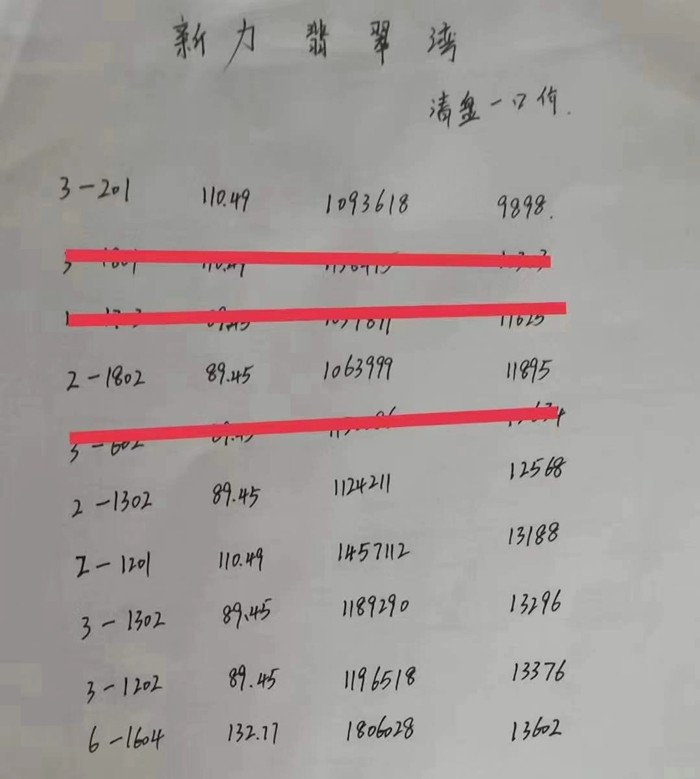 新力翡翠湾
清盘一口价.
3-201 110.49 1093618 9898.
2-1802 89.45 1063999 11895
2-1302 89.45 1124211 12568
2-1201 110.49 1457112 13188
3-1302 89.45 1189290 13296
3-1202 89.45 1196518 13376
6-1604 132.77 1806028 13602